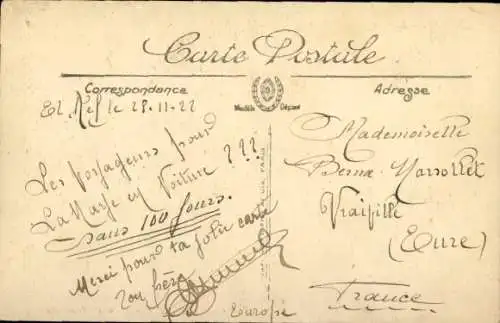 Carte Postale
Correspondance
Adresse
Modèle Déposé
El Kef le 28-11-22
Les voyageurs pour
La Haye en voiture ???
dans 100 jours.
Merci pour ta jolie carte
Ton frère
Mademoiselle
Berna
Vraiville
(Eure)
France
Europe